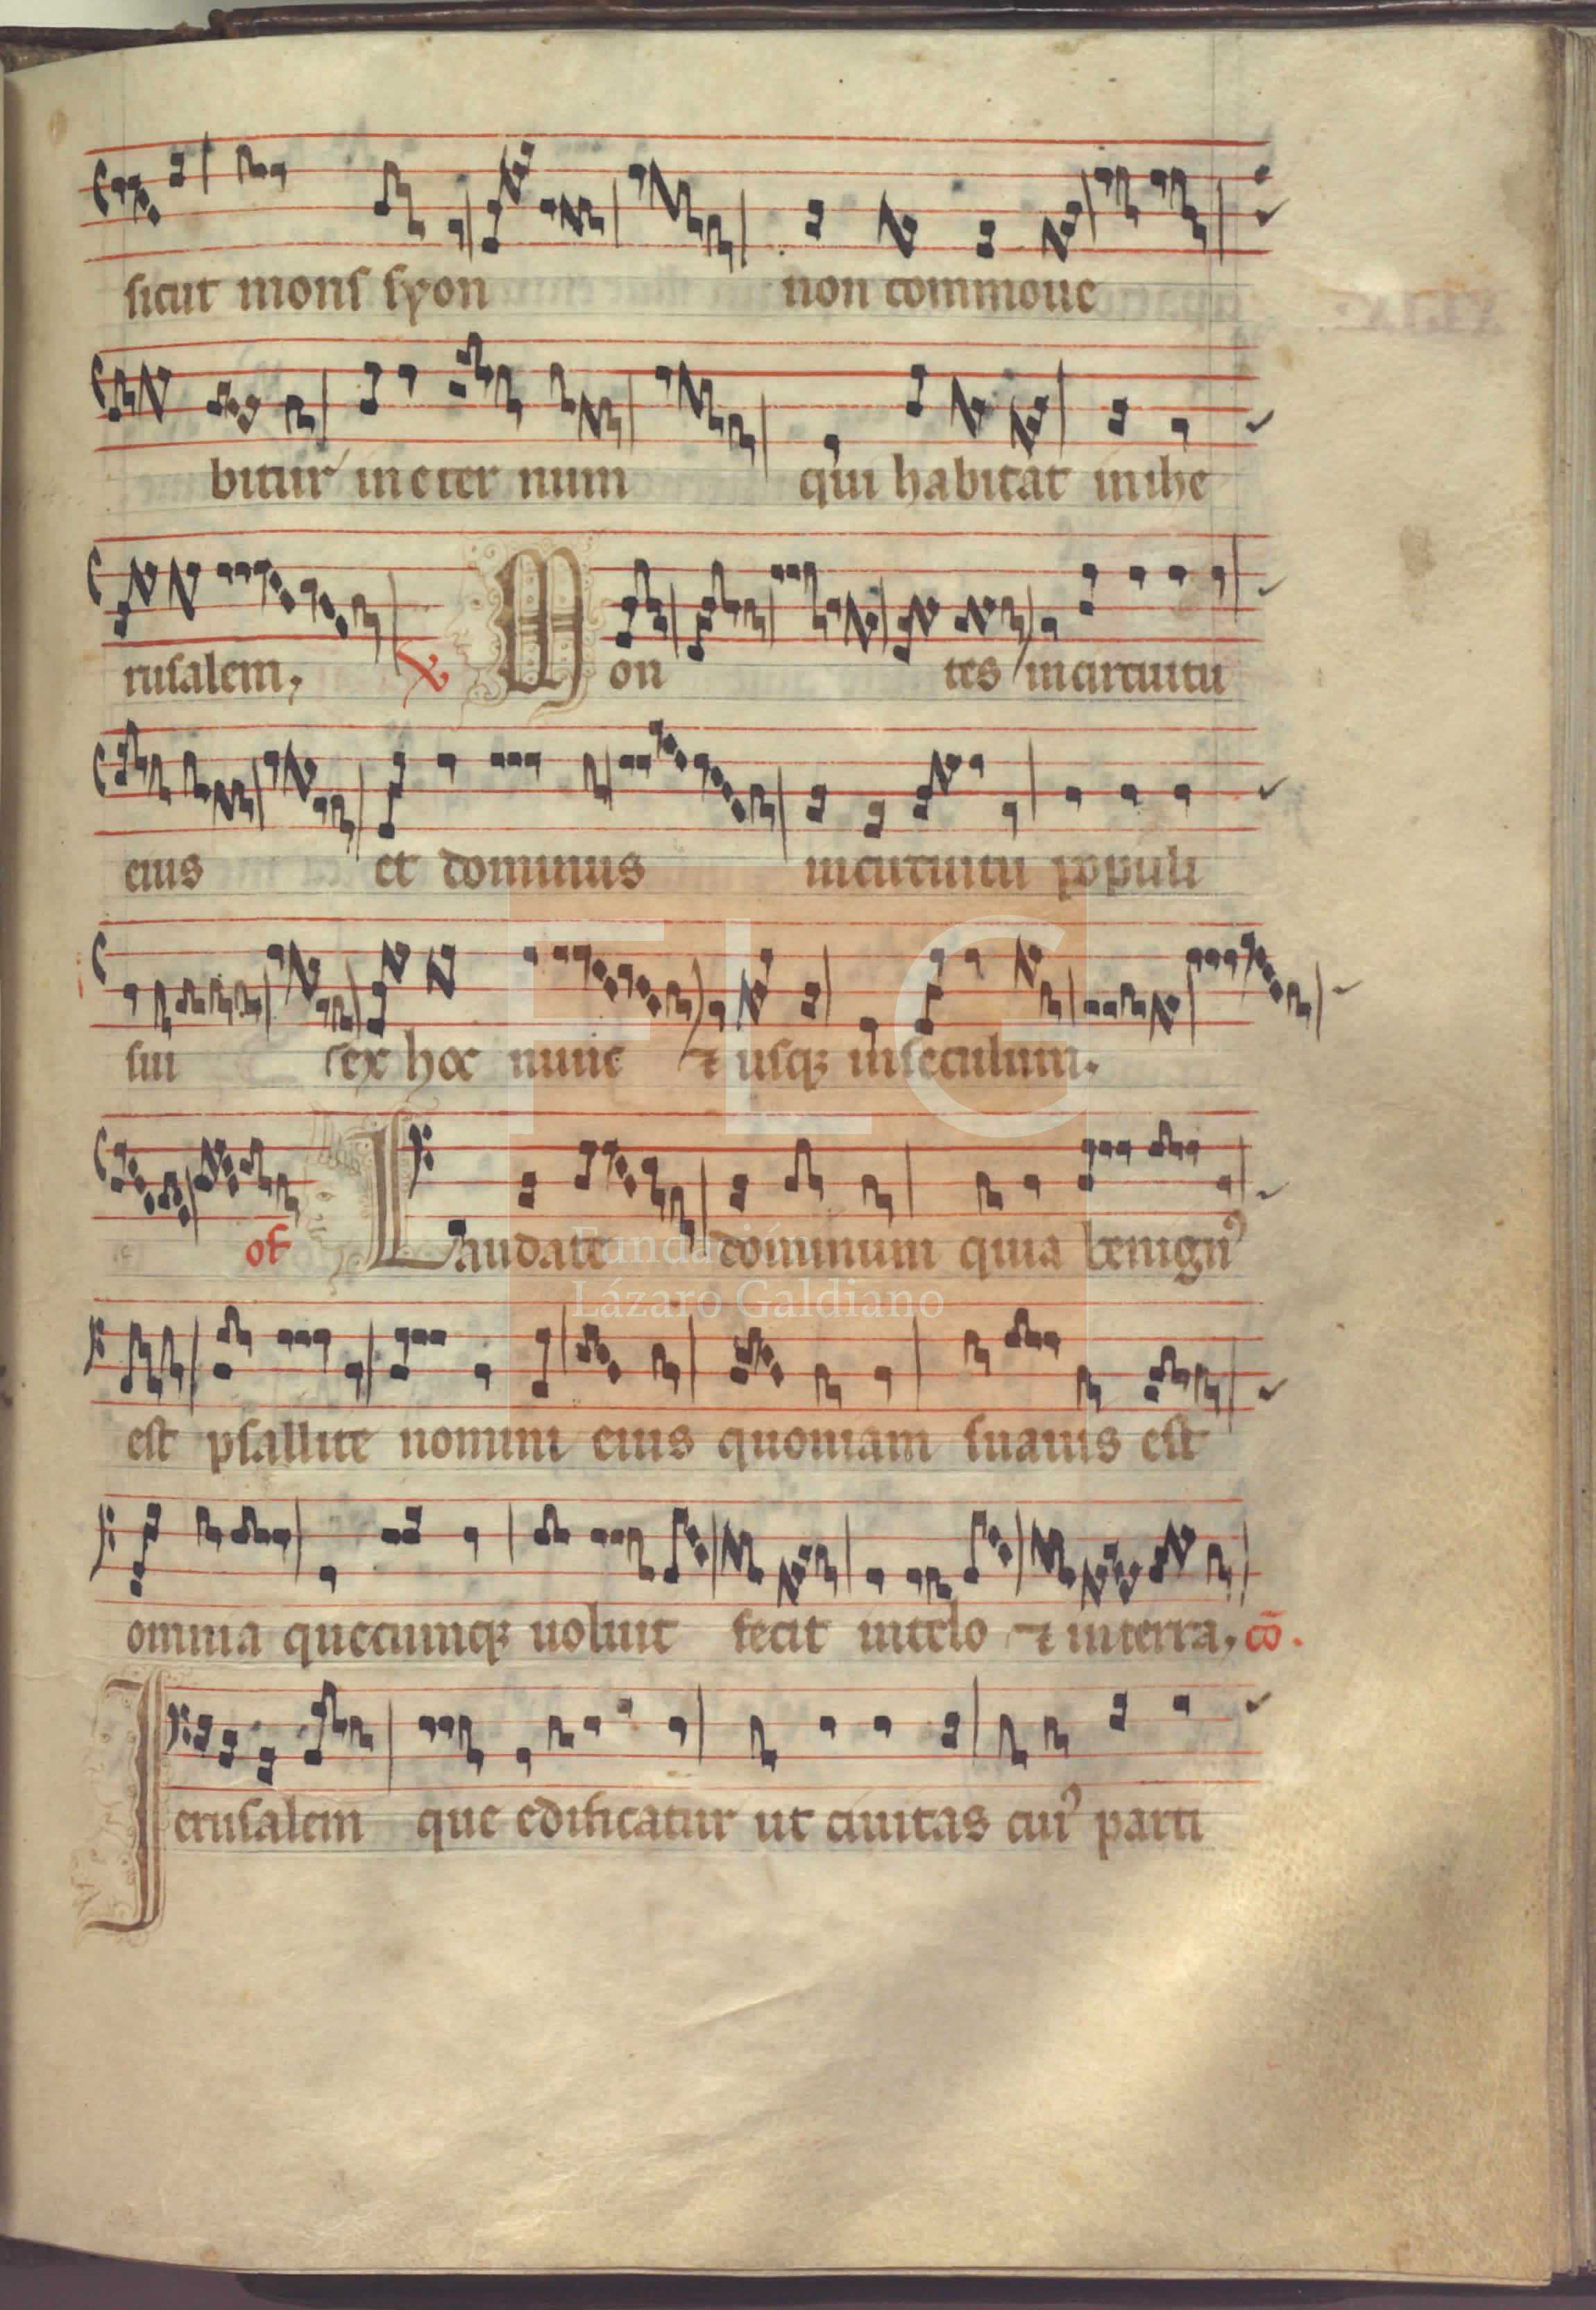 sicut mons syon non commoue
bitur in eter num qui habitat in ihe
rusalem, ℣ Mon tes in circuitu
eius et dominus in circuitu populi
sui ex hoc nunc ⁊ usq; in seculum.
of Laudate dominum quia benignꝰ
est psallite nomini eius quoniam suauis est
omnia quecumq; uoluit fecit in celo ⁊ in terra, cō.
Jerusalem que edificatur ut ciuitas cuiꝰ parti
FLG
Fundación
Lázaro Galdiano